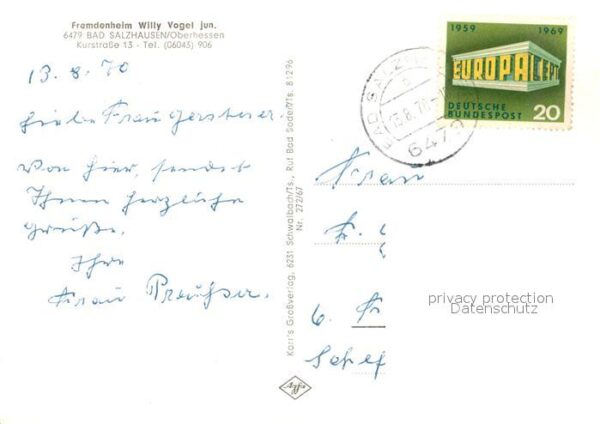 Fremdenheim Willy Vogel jun.
6479 BAD SALZHAUSEN/Oberhessen
Kurstraße 13 - Tel. (06045) 906
13.8.70
Liebe Frau
Von hier, sendet
Ihnen herzliche
Grüße.
Ihre
Frau
Karl's Großverlag, 6231 Schwalbach/Ts., Ruf Bad Soden/Ts. 81296
Nr. 272/67
Agfa
1959 1969
EUROPA CEPT
DEUTSCHE
BUNDESPOST 20
BAD SALZ
13.8.70
6479
Frau
F.
6. Fr
privacy protection
Datenschutz